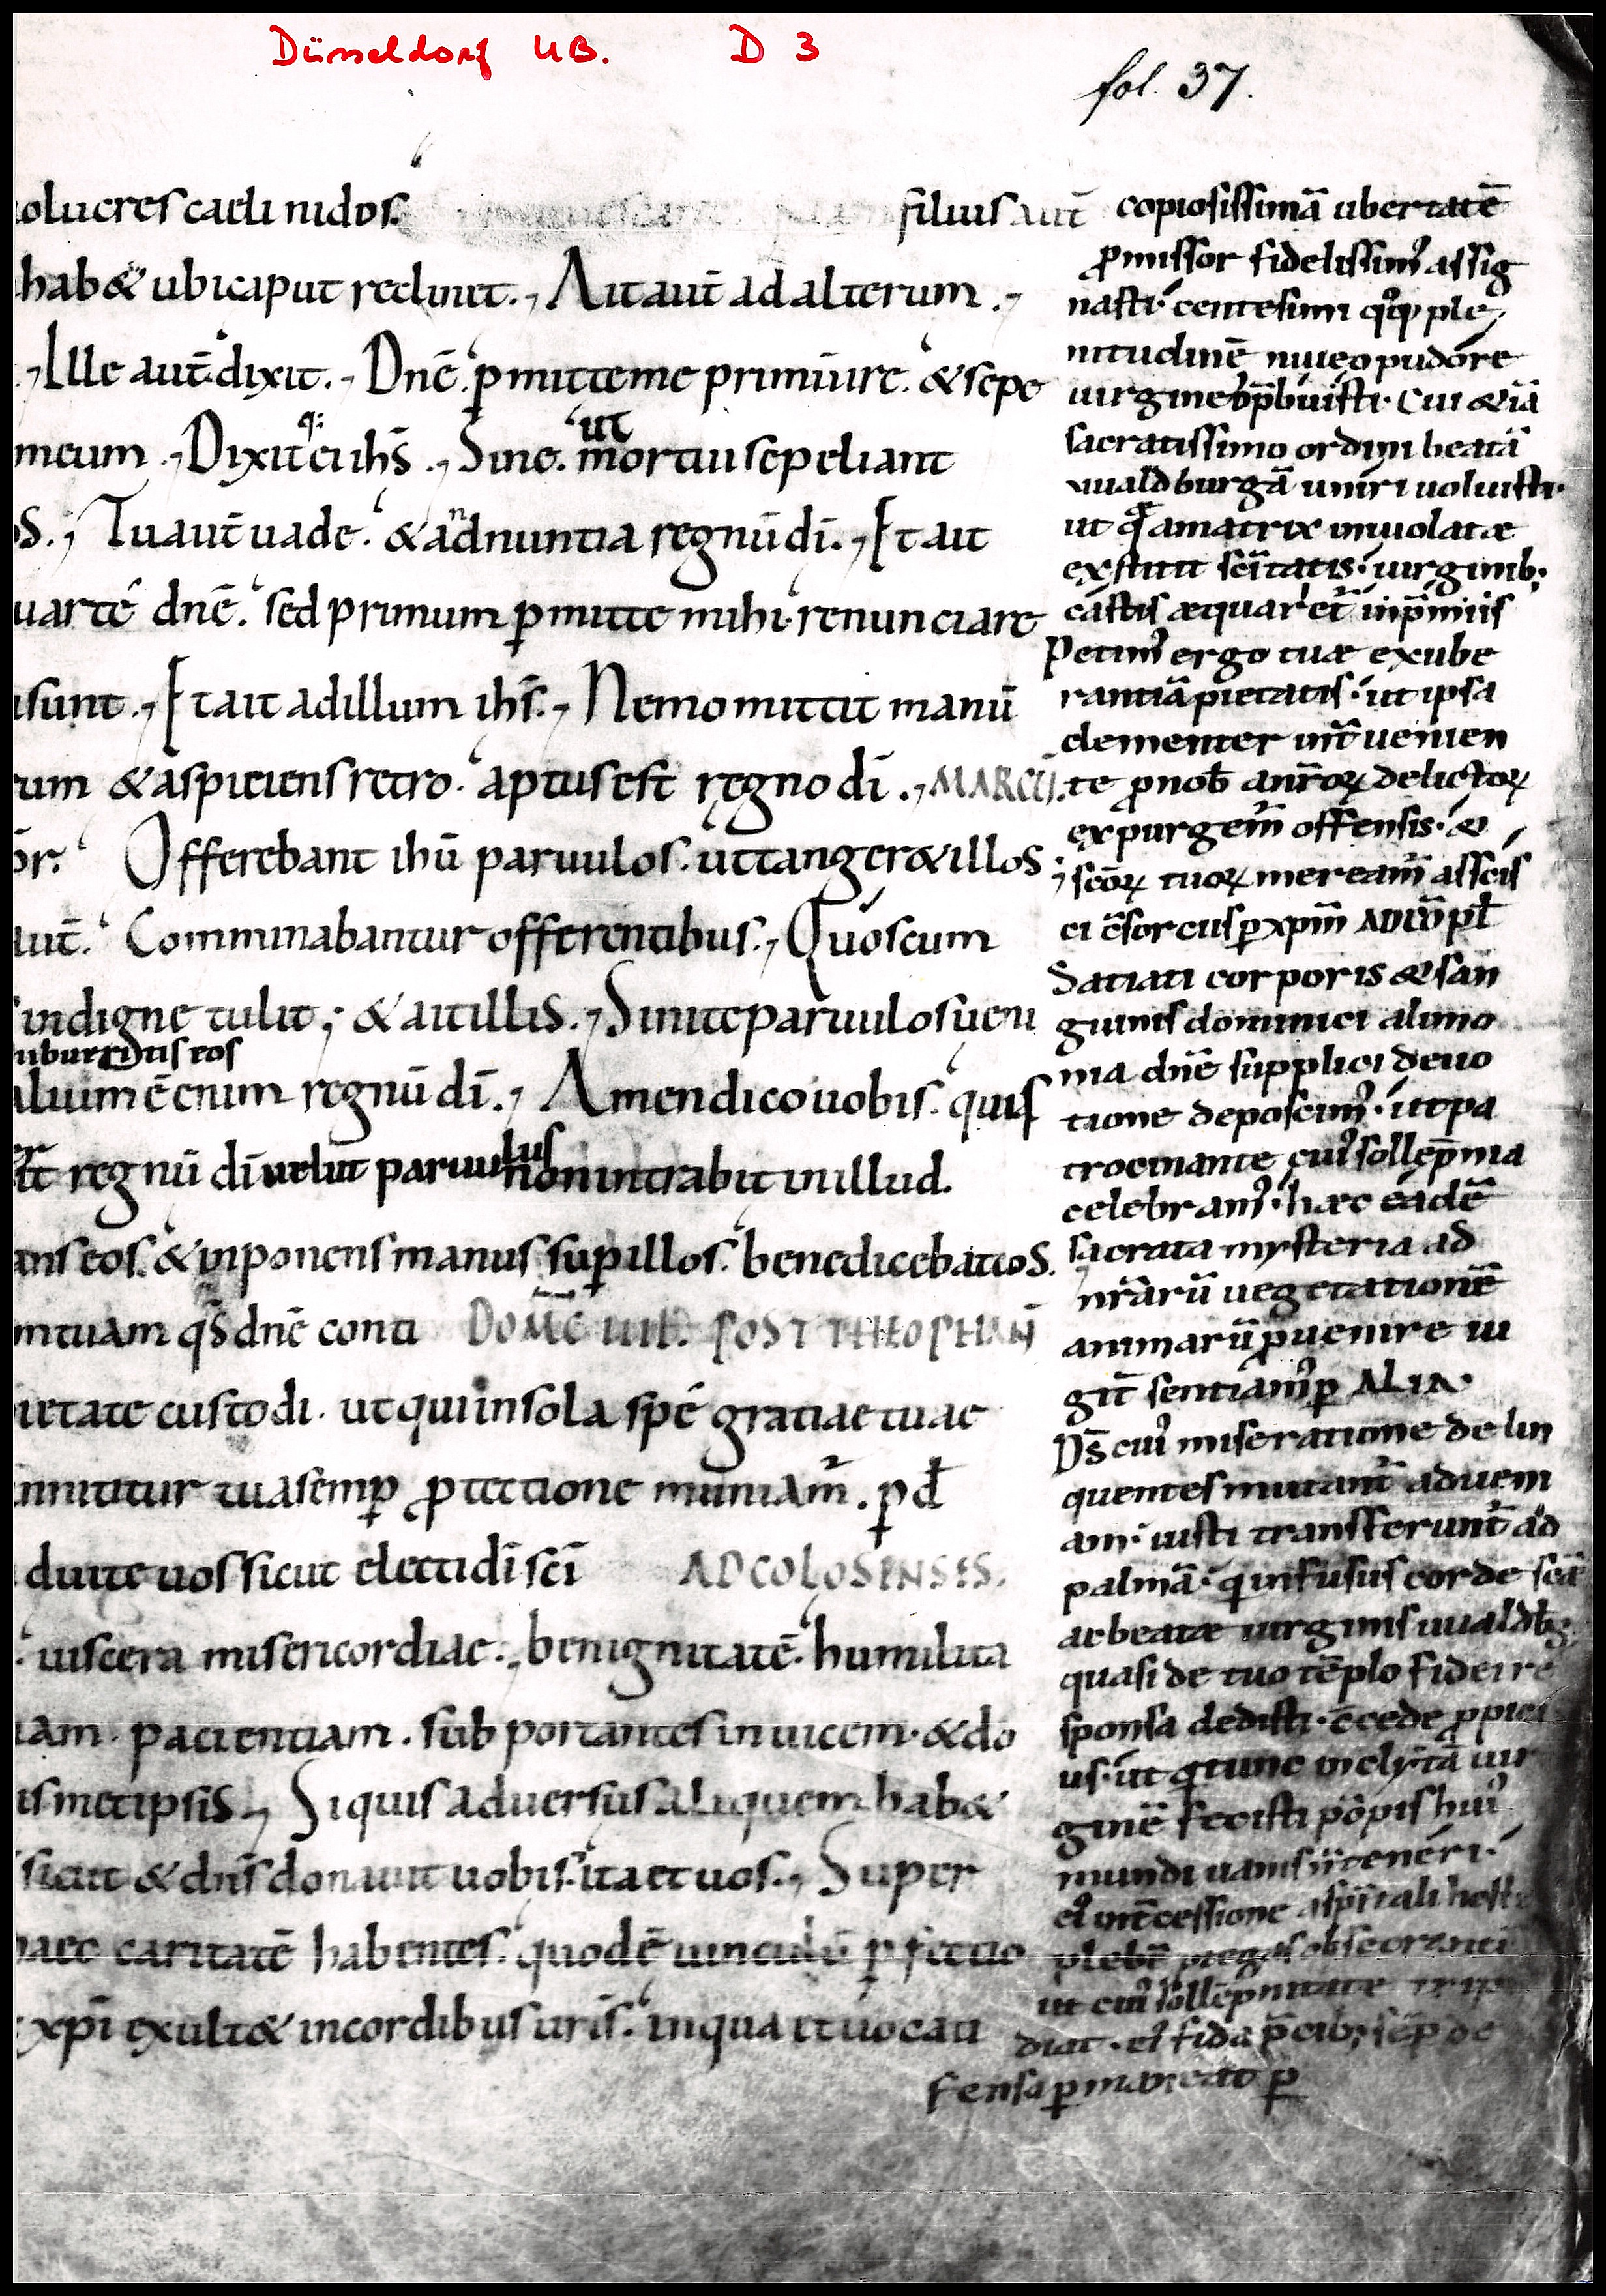 Düsseldorf UB. D 3
fol. 37.
uolucres caeli nidos. filius aut̄
hab& ubi caput reclinet. Ait aut̄ ad alterum.
Ille aut̄ dixit. Dnē. p̱mitte me primū ire. & sepe
meum. Dixitq; ei ih̄s. Sine. ut mortui sepeliant
os. Tu aut̄ uade. & adnuntia regnū dī. Et ait
uar te dnē. sed primum p̱mitte mihi renunciare
sunt. Et ait ad illum ih̄s. Nemo mittit manū
rum & aspiciens retro. aptus est regno dī. MARCŪ.
ōr. Offerebant ihū paruulos. ut tanger& illos
aut̄. Comminabantur offerentibus. Quos cum
indigne tulit; & ait illis. Sinite paruulos ueni
hibueritis eos
alium ē enim regnū dī. Amen dico uobis. quis
it regnū dī uelut paruulus non intrabit in illud.
ans eos. & inponens manus sup illos. benedicebat eos.
m tuam qs̄ dnē conti DOMC IIII. POST THEOPHAN̄
ietate custodi. ut qui in sola spe gratiae tuae
innititur tua semp̱ protectione muniam̄. p d̄
duite uos sicut electi dī scī AD COLOSENSES.
uiscera misericordiae. benignitatē. humilita
iam. pacientiam. subportantes inuicem. & do
ismetipsis. Si quis aduersus aliquem hab&
sicut & dn̄s donauit uobis. ita et uos. Super
haec caritatē habentes. quod ē uinculū p̱fectio
xpī exult& in cordibus uris̄. in qua et uocati
copiosissimā ubertatē
promissor fidelissim' assig
nasti. centesimi quoq; ple
nitudinē niueo pudore
uirgineo p̄buisti. Cui & iā
sacratissimo ordini beatā
uualdburgā uniri uoluisti.
ut q amatrix inuiolatae
exstitit scītatis. uirginib;
castis aequaret̄ in p̄miis
Petim' ergo tuae exube
rantiā pietatis. ut ipsa
clementer int̄uenien
te p nob̄ a nr̄oꝝ delictoꝝ
expurgem̄ offensis. &
scōꝝ tuoꝝ meream̄ assis
ci c̄sorcus p xpm̄ AD CŌPL̄
Satiati corporis & san
guinis dominici alimo
nia dnē supplici deuo
tione deposcim'. ut pa
trocinante cui' sollēpnia
celebram'. haec eadē
sacrata mysteria ad
nr̄arū uegetationē
animarū puenire iu
git̄ sentiam' p ALIA.
Ds̄ cui' miseratione delin
quentes mutant̄ ad ueni
am. iusti transferunt̄ ad
palmā. q infusus corde scā
ae beatae uirginis uualdb̄g
quasi de tuo tēplo fidei re
sponsa dedisti. c̄cede propici
us. ut q tunc inclytā uir
ginē fecisti pōpis hui'
mundi uanis
ei' int̄cessione
plebē
ut cui' sollēpnitate
diat. ei' fida p̄cib; sēp de
fensa p̱maneat p̱